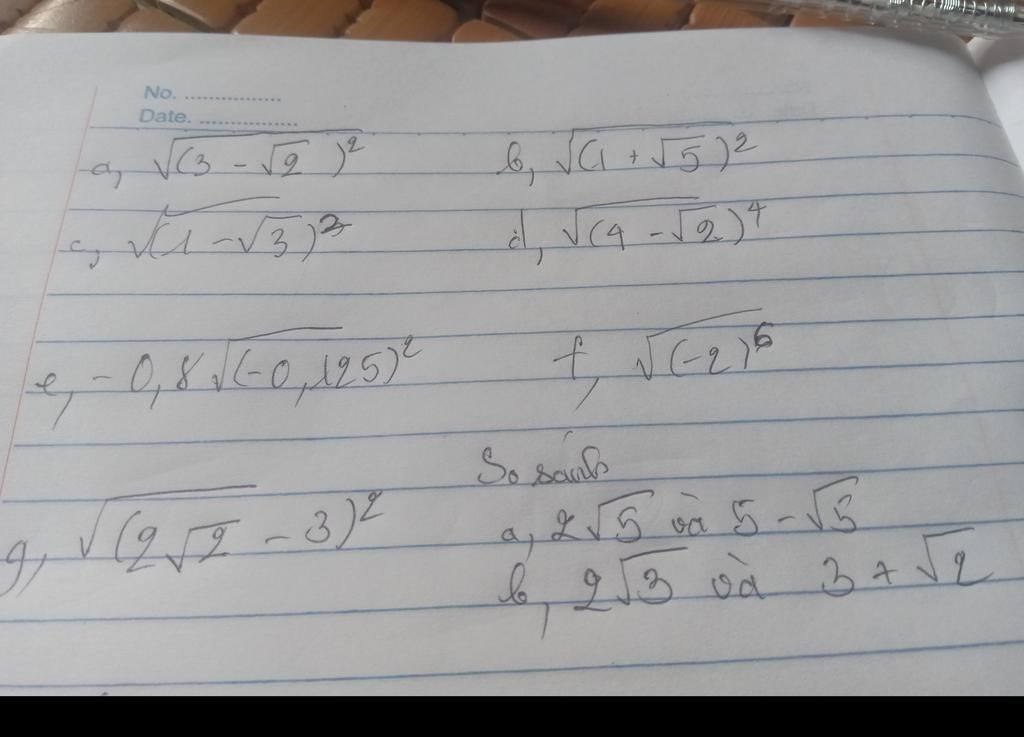 No. ...............
Date. ................
a, √(3 - √2)² b, √(1 + √5)²
c, √(1 - √3)² d, √(4 - √2)⁴
e, - 0,8 √(-0,125)² f, √(-2)⁶
So sánh
g, √(2√2 - 3)² a, 2√5 và 5 - √5
b, 2√3 và 3 + √2